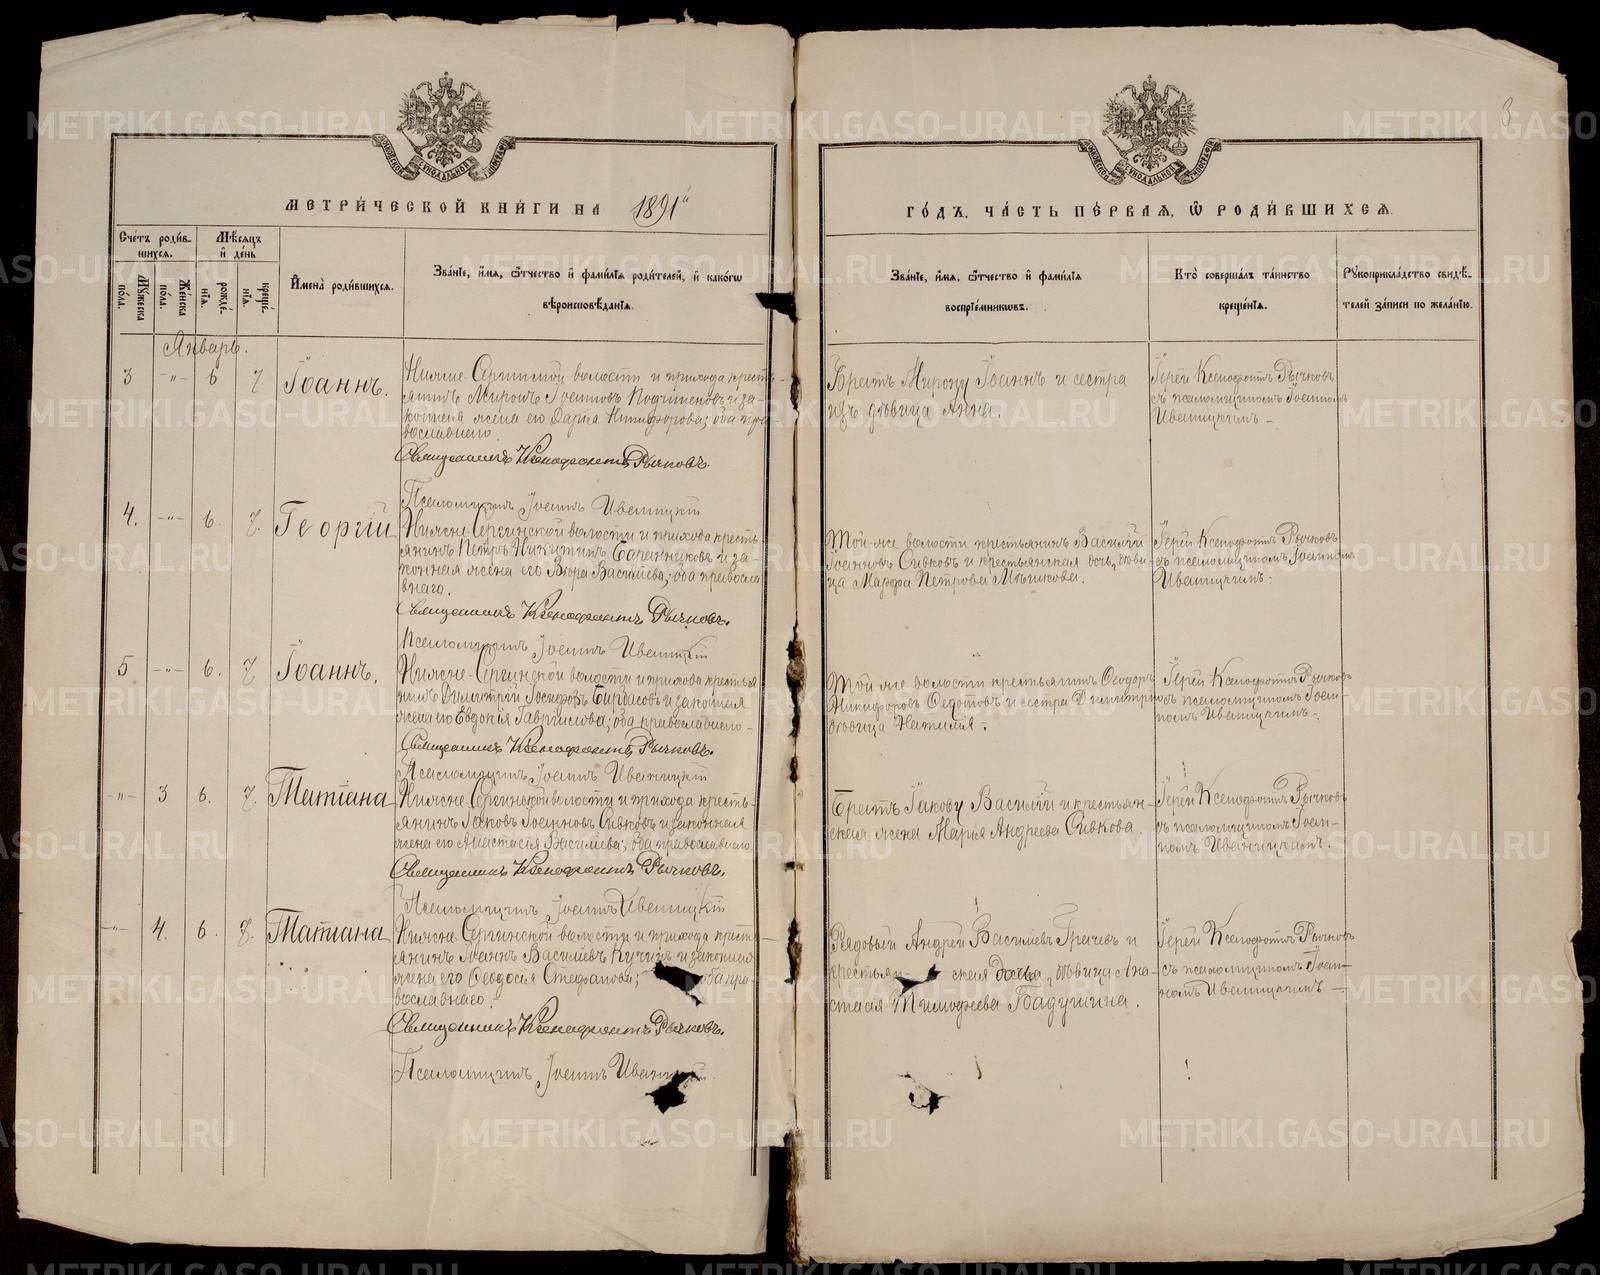 МЕТРИ́ЧЕСКОЙ КНИ́ГИ НА 1891й
ГО́ДЪ, ЧА́СТЬ ПЕ́РВАЯ, Ѡ҆ РОДИ́ВШИХСЯ.
3
Сче́тъ роди́вшихся.
Мѣ́сяцъ и҆ де́нь
Му́жеска по́ла.
Же́нска по́ла.
рожде́нїя.
креще́нїя.
И҆мена̀ роди́вшихся.
Зва́нїе, и҆́мя, ѻ҆́тчество и҆ фами́лїя роди́телей, и҆ како́гѡ
вѣроисповѣ́данїя.
Зва́нїе, и҆́мя, ѻ҆́тчество и҆ фами́лїя
воспрїе́мникѡвъ.
Кто̀ соверша́лъ та́инство
креще́нїя.
Рꙋкоприкла́дство свидѣ́телей за́писи по жела́нїю.
Январь.
3 -"- 6 7 Іоаннъ.
Нижне-Сергинской волости и прихода кресть-
янинъ Миронъ Іоанновъ и за-
конная жена его Дарія Никифорова; оба пра-
вославнаго.
Священникъ Ксенофонтъ Рычковъ.
Псаломщикъ Іоаннъ Иваницкій
Братъ Мирону Іоаннъ и сестра
ихъ дѣвица Анна.
Іерей Ксенофонтъ Рычковъ
съ псаломщикомъ Іоанномъ
Иваницкимъ.-
4. -"- 6. 7. Георгій
Нижне-Сергинской волости и прихода кресть-
янинъ Петръ Никитинъ и за-
конная жена его Вѣра Васильева; оба правосла-
внаго.
Священникъ Ксенофонтъ Рычковъ.
Псаломщикъ Іоаннъ Иваницкій
Той-же волости крестьянинъ Василій
Іоанновъ Сивковъ и крестьянская дочь, дѣви-
ца Марѳа Петрова
Іерей Ксенофонтъ Рычковъ
съ псаломщикомъ Іоанномъ
Иваницкимъ.-
5 -"- 6. 7 Іоаннъ.
Нижне-Сергинской волости и прихода крестья-
нинъ Димитрій Іосифовъ и законная
жена его Евдокія Гавриилова; оба православнаго.-
Священникъ Ксенофонтъ Рычковъ.
Псаломщикъ Іоаннъ Иваницкій
Той же волости крестьянинъ Ѳеодоръ
Никифоровъ Ѳедотовъ и сестра Димитрію
дѣвица Наталія.-
Іерей Ксенофонтъ Рычковъ
съ псаломщикомъ Іоан-
номъ Иваницкимъ.-
-"- 3 6. 7. Татіана
Нижне-Сергинской волости и прихода кресть-
янинъ Іаковъ Іоанновъ Сивковъ и законная
жена его Анастасія Васильева; оба православнаго.
Священникъ Ксенофонтъ Рычковъ.
Псаломщикъ Іоаннъ Иваницкій
Братъ Іакову Василій и крестьян-
ская жена Марія Андреева Сивкова.
Іерей Ксенофонтъ Рычковъ
съ псаломщикомъ Іоан-
номъ Иваницкимъ.
-"- 4. 6. 7. Татіана
Нижне-Сергинской волости и прихода кресть-
янинъ Іоаннъ Васильевъ Кучинъ и законная
жена его Ѳеодосія Стефанова; оба пра-
вославнаго.
Священникъ Ксенофонтъ Рычковъ.
Псаломщикъ Іоаннъ
Рядовый Андрей Васильевъ Грачевъ и
крестьян- ская дочь, дѣвица Ана-
стасія Тимоѳеева Бадушина.
Іерей Ксенофонтъ Рычковъ
съ псаломщикомъ Іоан-
номъ Иваницкимъ.-
METRIKI.GASO-URAL.RU